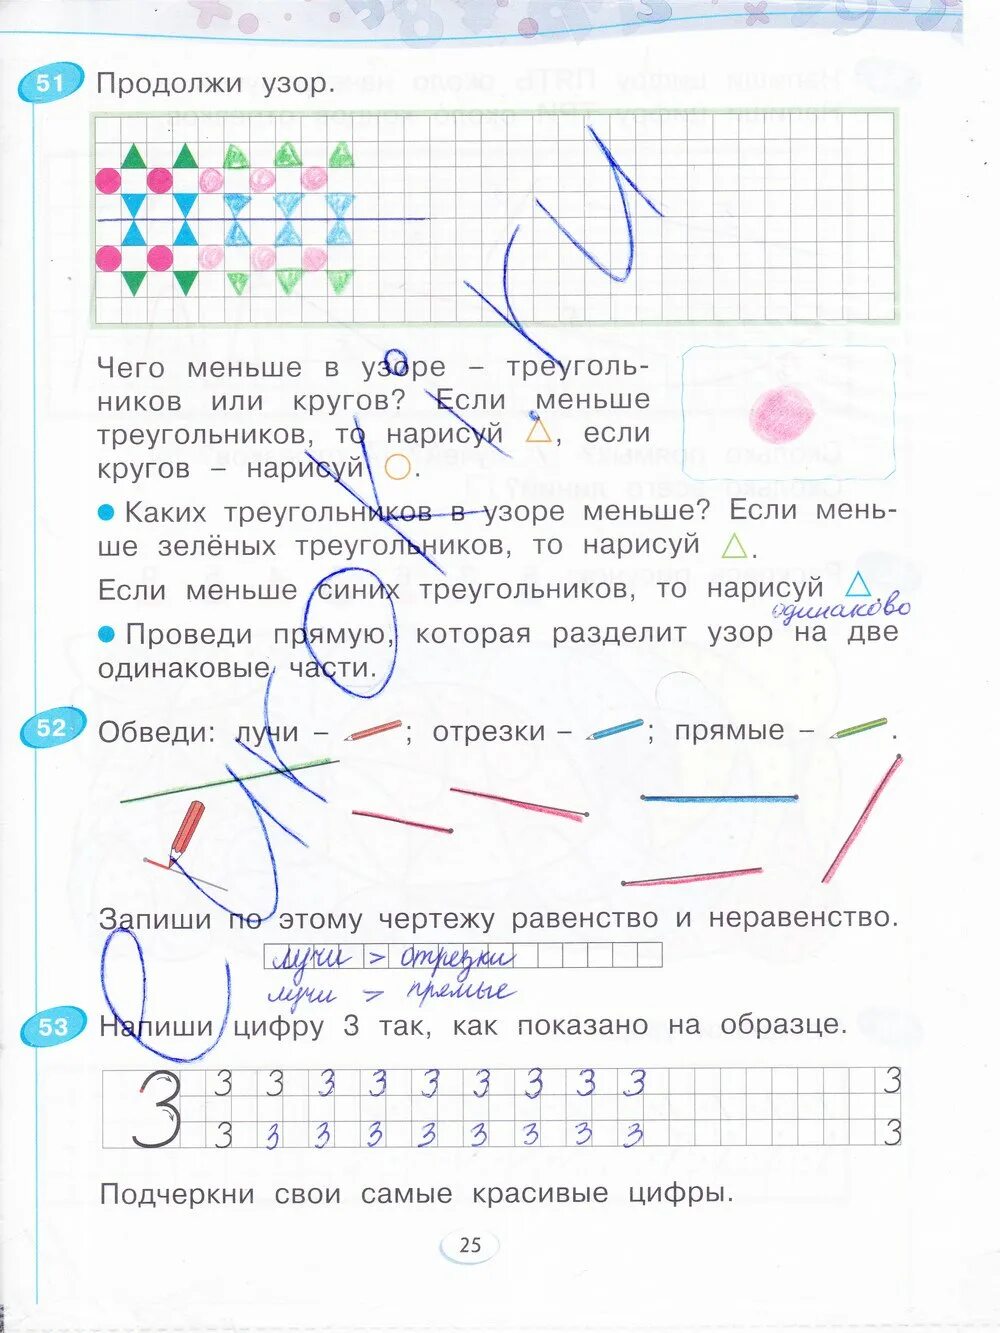 51 Продолжи узор.
Чего меньше в узоре – треуголь-
ников или кругов? Если меньше
треугольников, то нарисуй , если
кругов – нарисуй .
Каких треугольников в узоре меньше? Если мень-
ше зелёных треугольников, то нарисуй .
Если меньше синих треугольников, то нарисуй .
одинаково
Проведи прямую, которая разделит узор на две
одинаковые части.
52 Обведи: лучи – ; отрезки – ; прямые – .
Запиши по этому чертежу равенство и неравенство.
лучи > отрезки
лучи > прямые
53 Напиши цифру 3 так, как показано на образце.
3 3 3 3 3 3 3 3 3 3 3
3 3 3 3 3 3 3 3 3 3
Подчеркни свои самые красивые цифры.
25